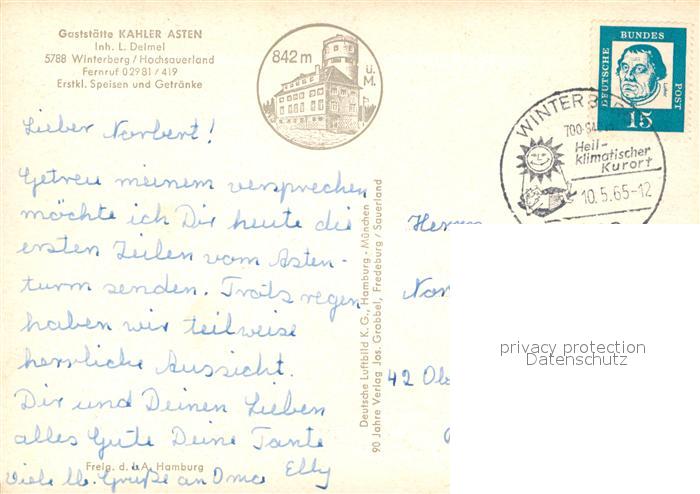 Gaststätte KAHLER ASTEN
Inh. L. Deimel
5788 Winterberg / Hochsauerland
Fernruf 02981 / 419
Erstkl. Speisen und Getränke
842 m
ü.
M.
DEUTSCHE BUNDES POST
15
WINTERB
700-84
Heil-
klimatischer
Kurort
10.5.65-12
Lieber Norbert!
Getreu meinem versprechen
möchte ich Dir heute die
ersten Zeilen vom Asten-
turm senden. Trots regen
haben wir teilweise
herrliche Aussicht.
Dir und Deinen Lieben
alles Gute Deine Tante
Elly
viele lb. Grüße an Oma
Freig. d. LA. Hamburg
Deutsche Luftbild K. G., Hamburg - München
90 Jahre Verlag Jos. Grobbel, Fredeburg / Sauerland
Herrn
Nor
42 Ob
privacy protection
Datenschutz